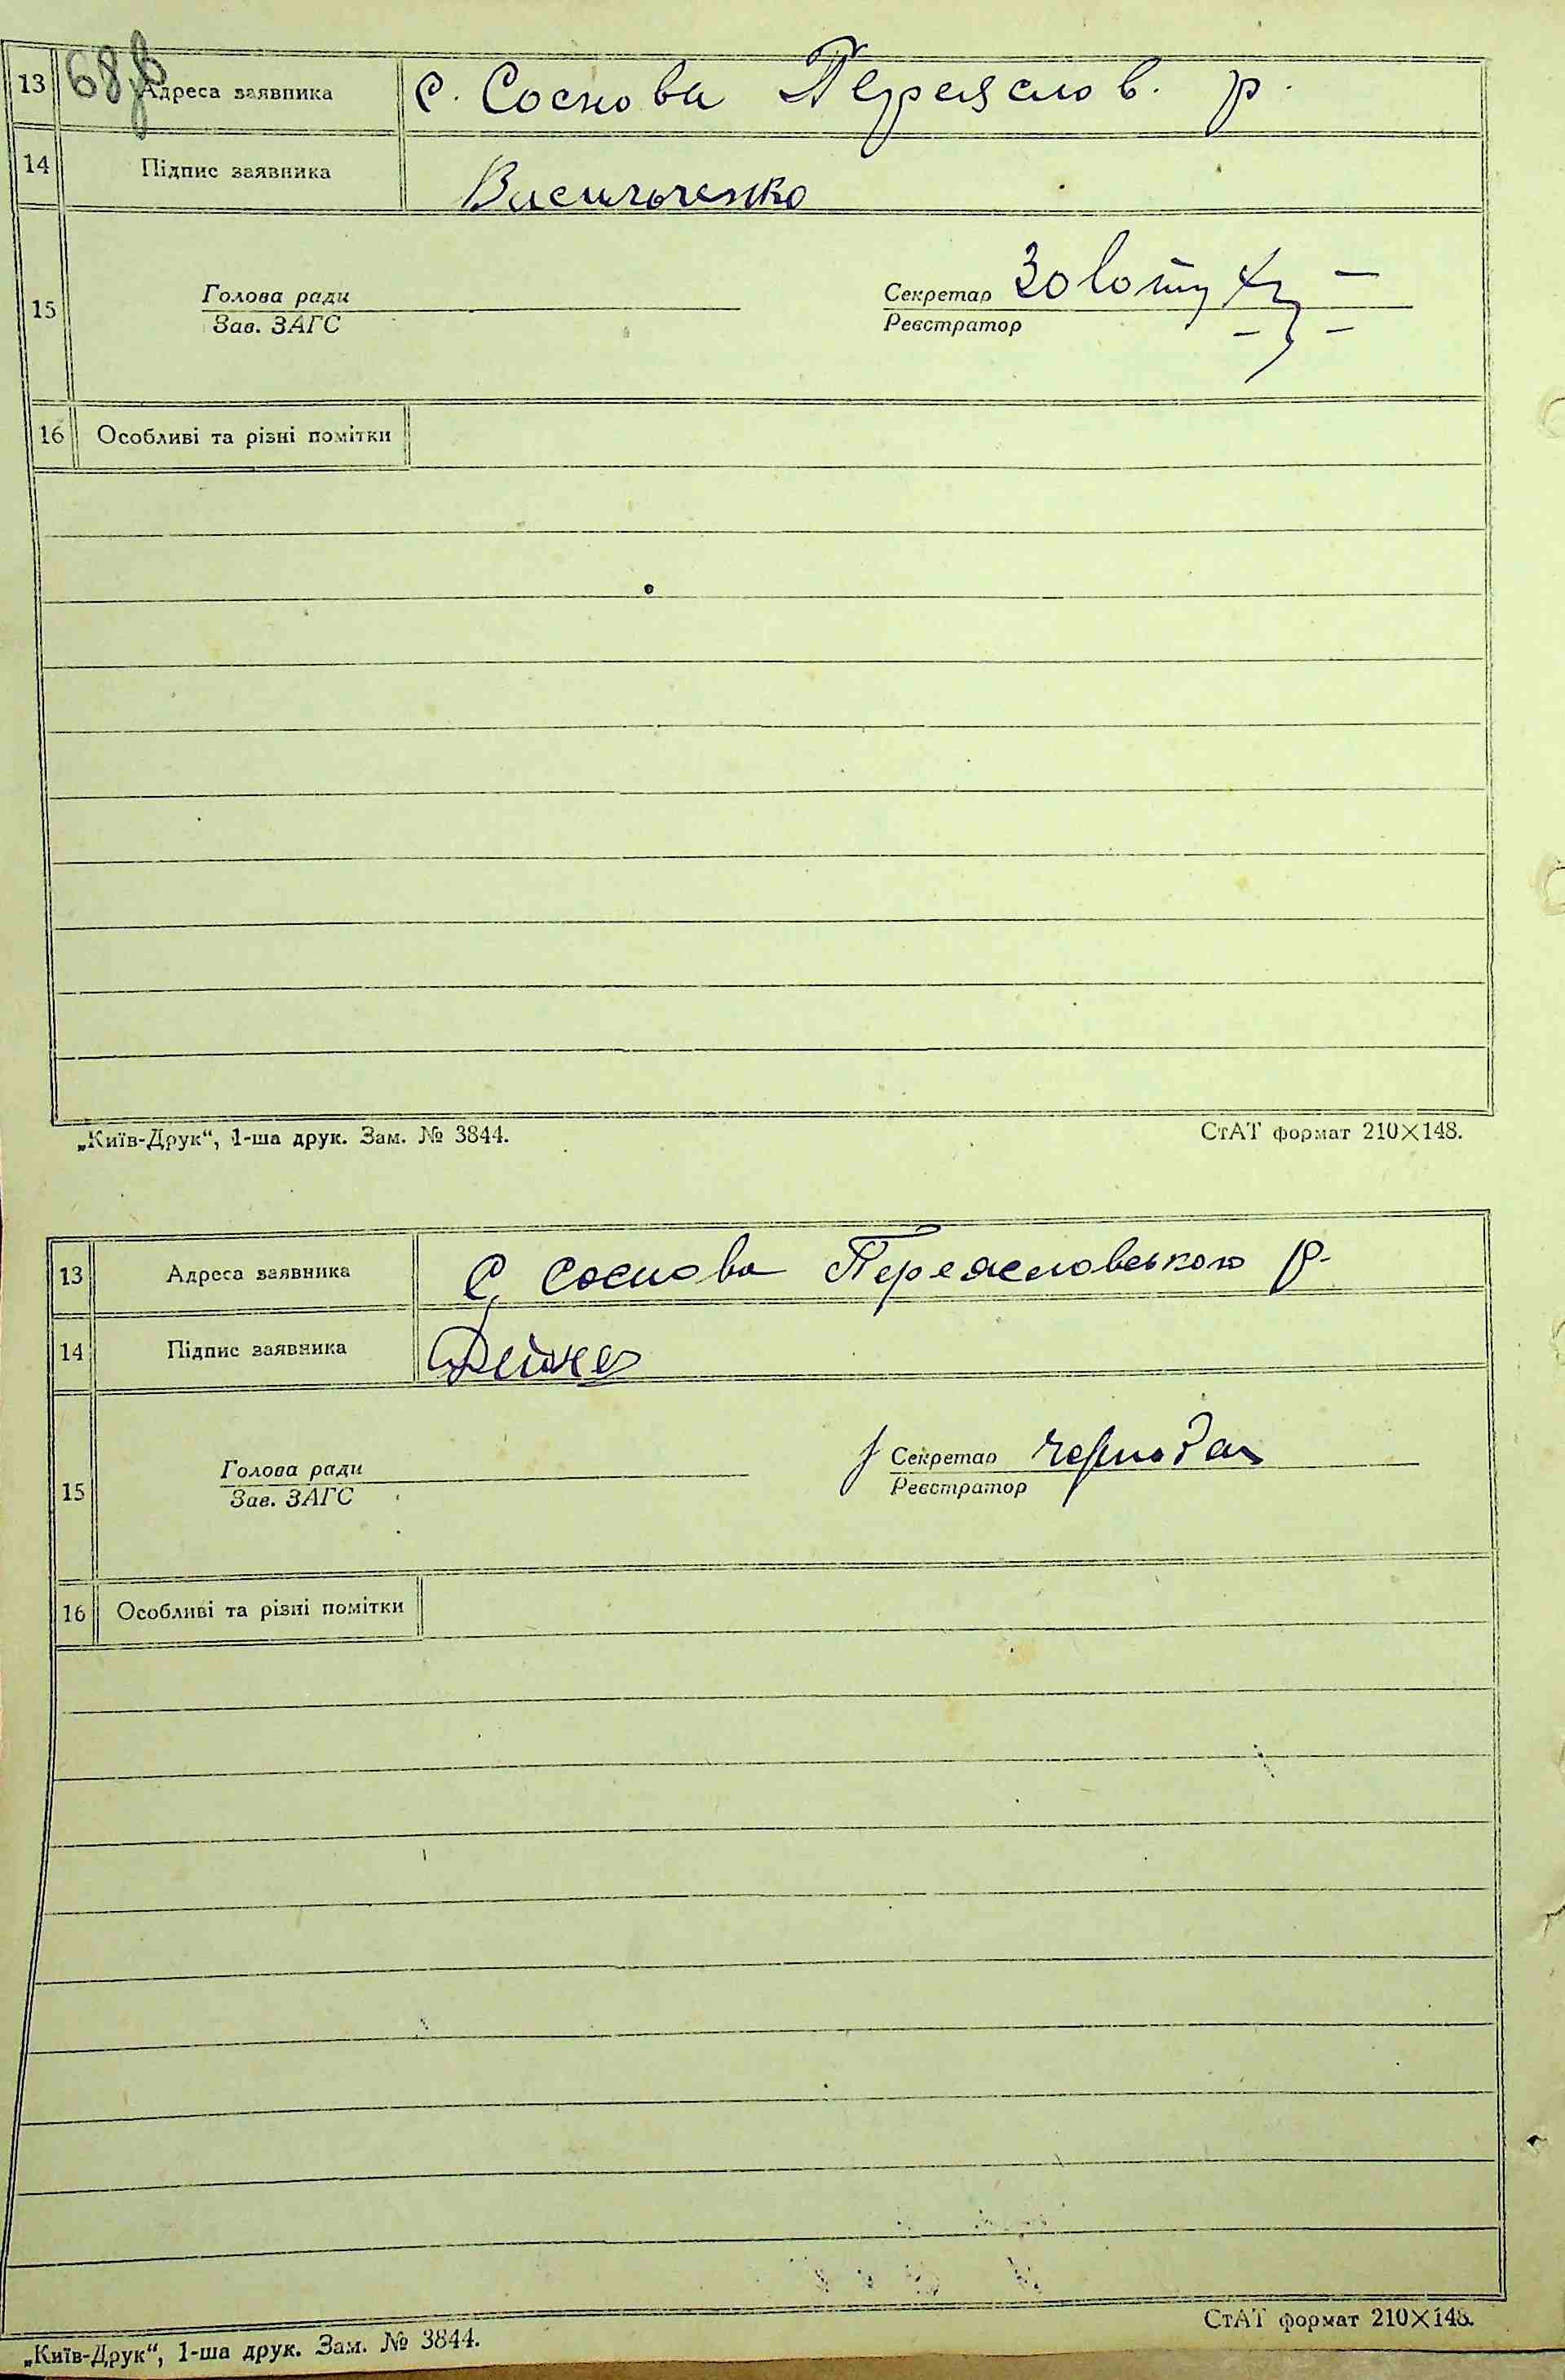 68
13 Адреса заявника с. Соснова Переяслов. р.
14 Підпис заявника Васильченко
15 Голова ради Секретар
Зав. ЗАГС Реєстратор
16 Особливі та різні помітки
„Київ-Друк“, 1-ша друк. Зам. № 3844. СтАТ формат 210×148.
13 Адреса заявника с. Соснова Переясловського р.
14 Підпис заявника
15 Голова ради Секретар
Зав. ЗАГС Реєстратор
16 Особливі та різні помітки
„Київ-Друк“, 1-ша друк. Зам. № 3844. СтАТ формат 210×148.